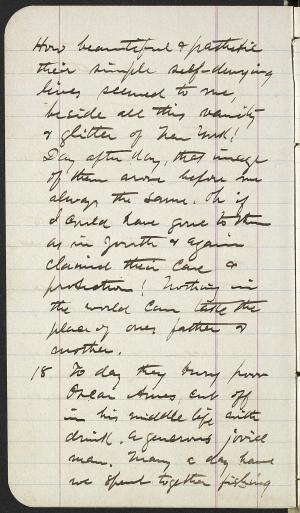 How beautiful & pathetic
their simple self-denying
lives seemed to me,
beside all this vanity
& glitter of New York!
Day after day, that image
of them arose before me
always the same. Oh if
I could have gone to them
as in youth & again
claimed their care &
protection! Nothing in
the world can take the
place of ones father &
mother.
18 To day they bury poor
Oscar Ames, cut off
in his middle life with
drink. A generous jovial
man. Many a day have
we spent together fishing